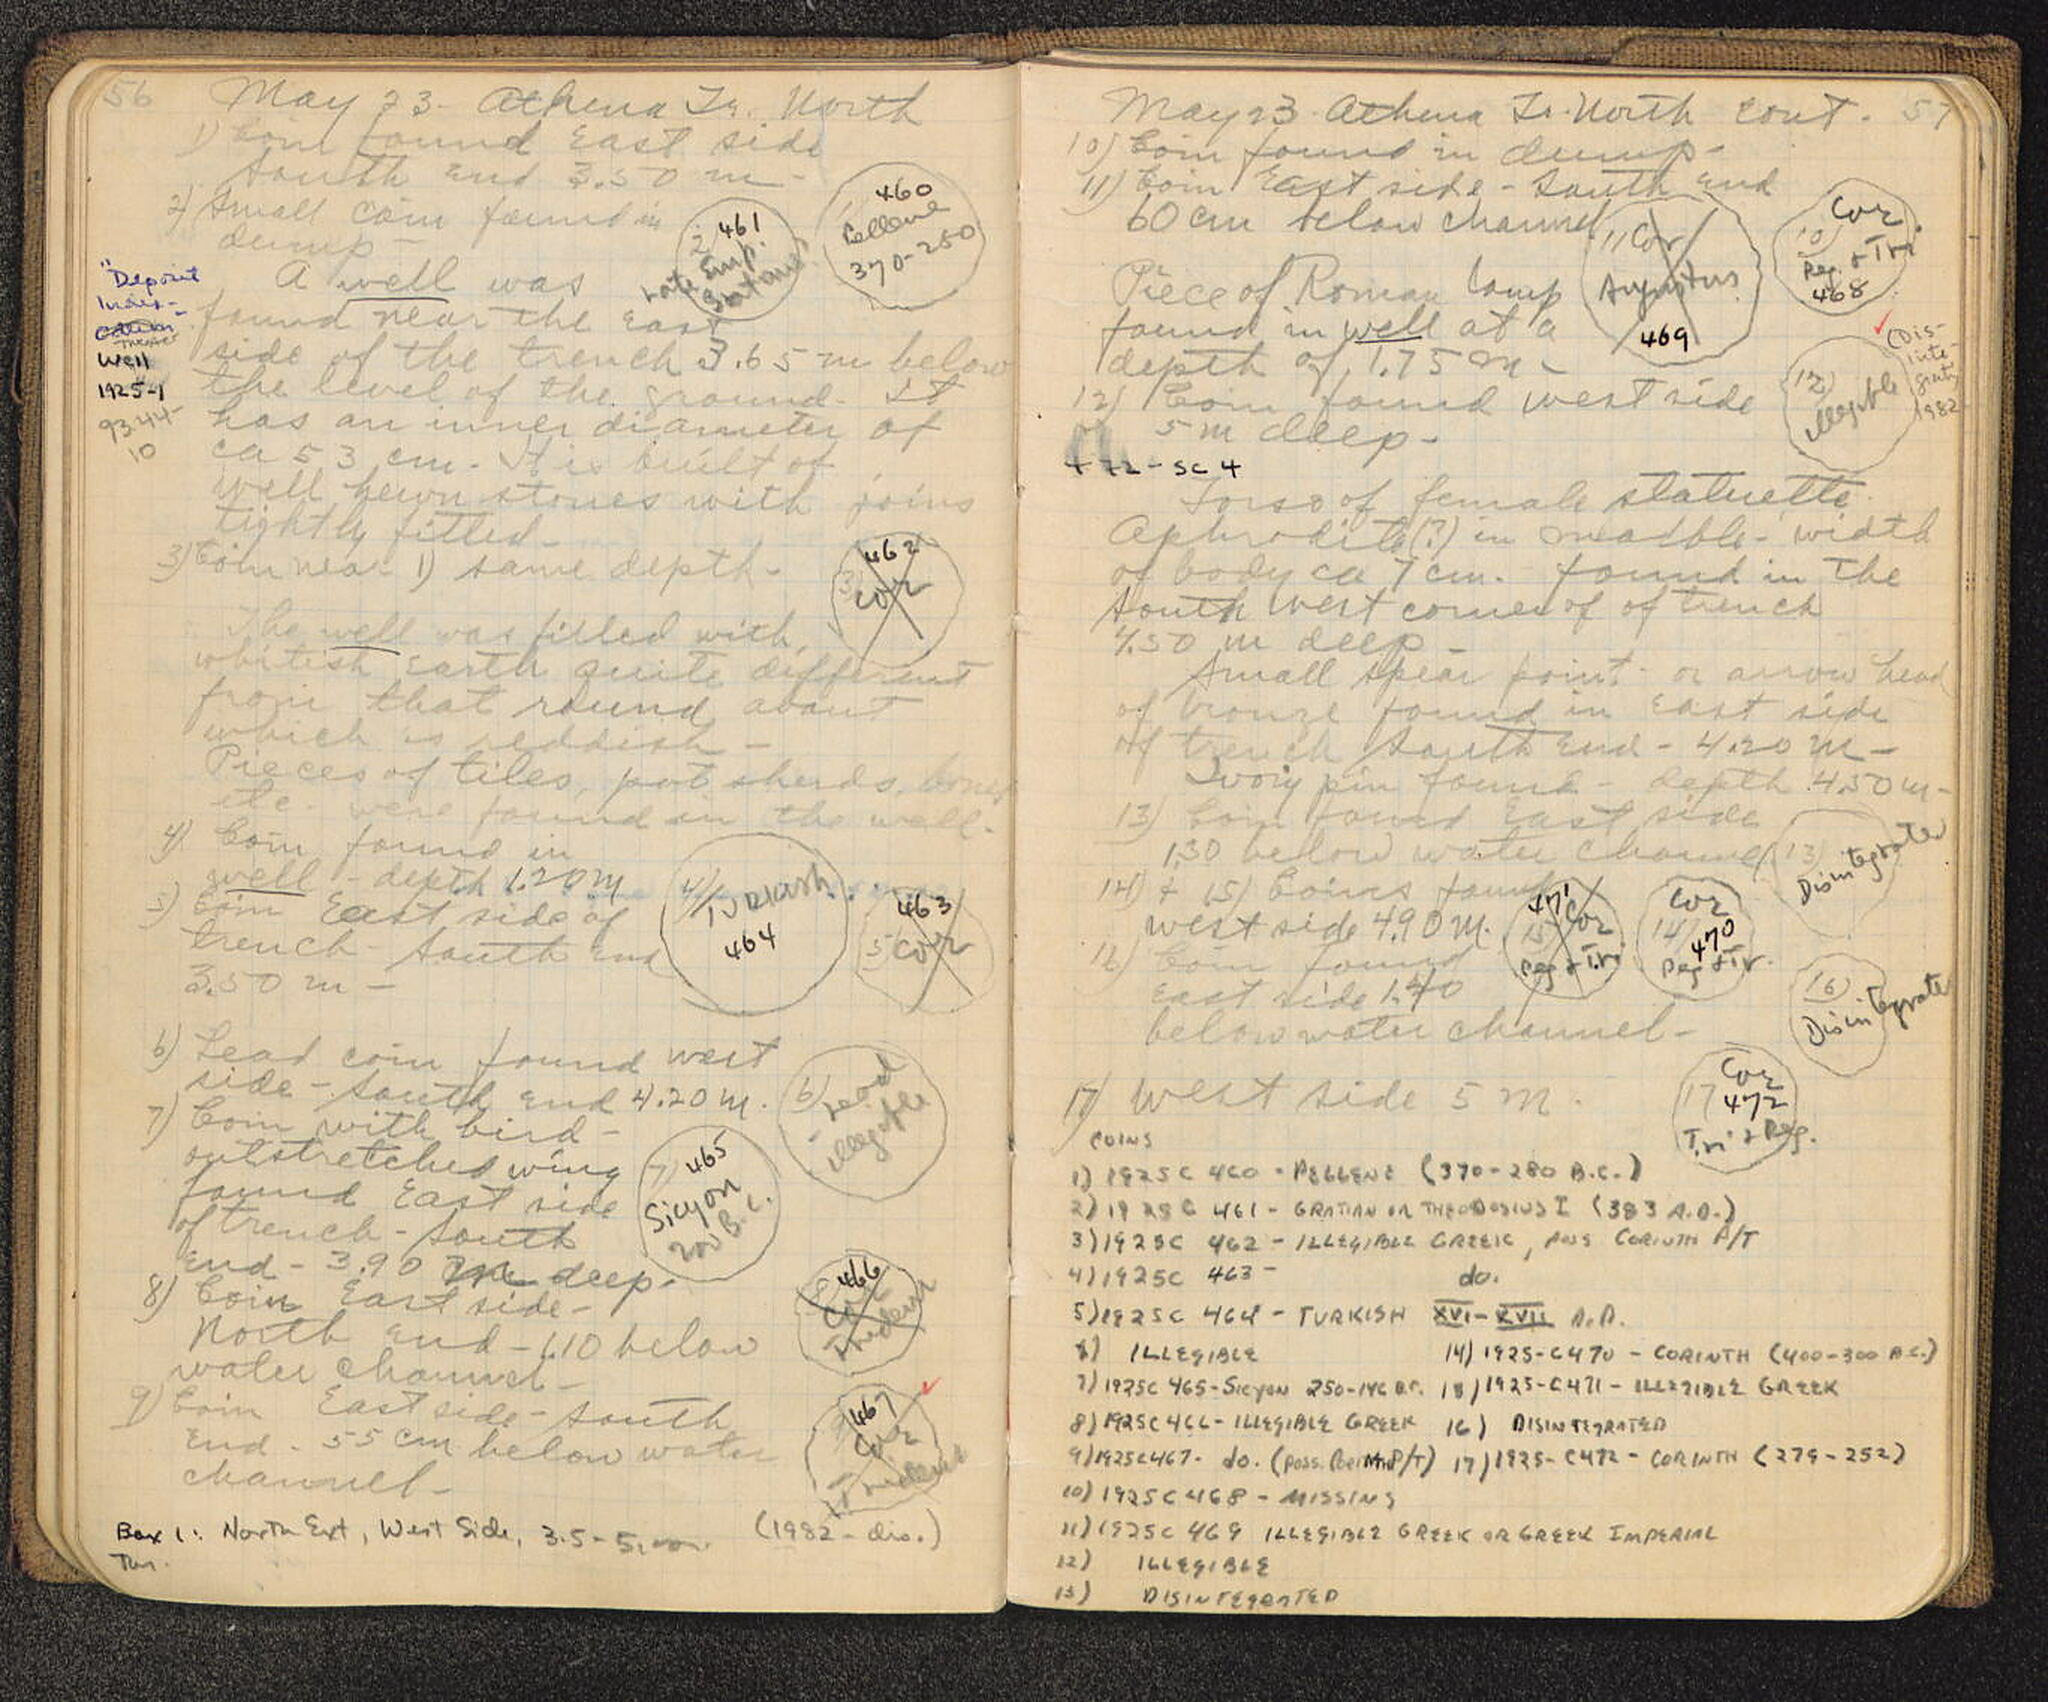 56 May 23 - Athena Tr. North
1) Coin found East side
South End 3.50 m -
2) Small coin found in
dump -
460
1)
Pellene
370-280
461
2
Late Emp.
A well was
found near the East
side of the trench 3.65 m below
the level of the ground. It
has an inner diameter of
ca 53 cm. It is built of
well hewn stones with joins
tightly fitted -
"Deposit
Index -
Theater
Well
1925-1
93.44-
10
3) Coin near 1) same depth -
462
3)
Cor
The well was filled with
whitish earth quite different
from that round about
which is reddish -
Pieces of tiles, pot sherds, bones
etc. were found in the well -
4) Coin found in
well - depth 1.20 m
5) Coin East side of
trench - South End
3.50 m -
4)
Turkish
464
463
5 Cor
6) Lead coin found west
side - South End 4.20 m.
6)
Lead
illegible
7) Coin with bird -
outstretched wing
found East side
of trench - South
End - 3.90 m deep -
7) 465
Sicyon
200 B.C.
8) Coin East side -
North End - 1.10 below
water channel -
8) 466
Cor
Trident
9) Coin East side - South
End - 55 cm below water
channel -
467
Cor
Trident
(1982 - dis.)
Box 1: North Ext, West Side, 3.5 - 5.
May 23 - Athena Tr. North cont. 57
10) Coin found in dump -
11) Coin East side - South End
60 cm below channel
11 Cor
Augustus
469
Cor
10)
Peg. + Tri
468
Piece of Roman lamp
found in well at a
depth of 1.75 m -
12) Coin found west side
5 m deep -
12)
illegible
(Dis-
inte-
grated
1982
472 - SC 4
Torso of female statuette
Aphrodite (?) in marble - width
of body ca 7 cm. found in the
South West corner of of trench
4.50 m deep -
Small spear point - or arrow head
of bronze found in East side
of trench South End - 4.20 m -
Ivory pin found - depth 4.50 m -
13) Coin found East side
1.30 below water channel
13)
Disintegrated
14) + 15) Coins found
West side 4.90 m.
471
15) Cor
Peg + Tri
Cor
14)
470
Peg + Tr.
16) Coin found
East side 1.40
below water channel -
16)
Disintegrated
17) West side 5 m.
Cor
17 472
Tri + Peg.
COINS
1) 1925C 460 - PELLENE (370-280 B.C.)
2) 1925C 461 - GRATIAN OR THEODOSIUS I (383 A.D.)
3) 1925C 462 - ILLEGIBLE GREEK, POSS CORINTH P/T
4) 1925C 463 - do.
5) 1925C 464 - TURKISH XVI-XVII A.D.
6) ILLEGIBLE
7) 1925C 465 - SICYON 250-146 B.C.
8) 1925C 466 - ILLEGIBLE GREEK
9) 1925C 467 - do. (POSS. CORINTH P/T)
10) 1925C 468 - MISSING
11) 1925C 469 ILLEGIBLE GREEK OR GREEK IMPERIAL
12) ILLEGIBLE
13) DISINTEGRATED
14) 1925-C470 - CORINTH (400-300 B.C.)
15) 1925-C471 - ILLEGIBLE GREEK
16) DISINTEGRATED
17) 1925-C472 - CORINTH (279-252)